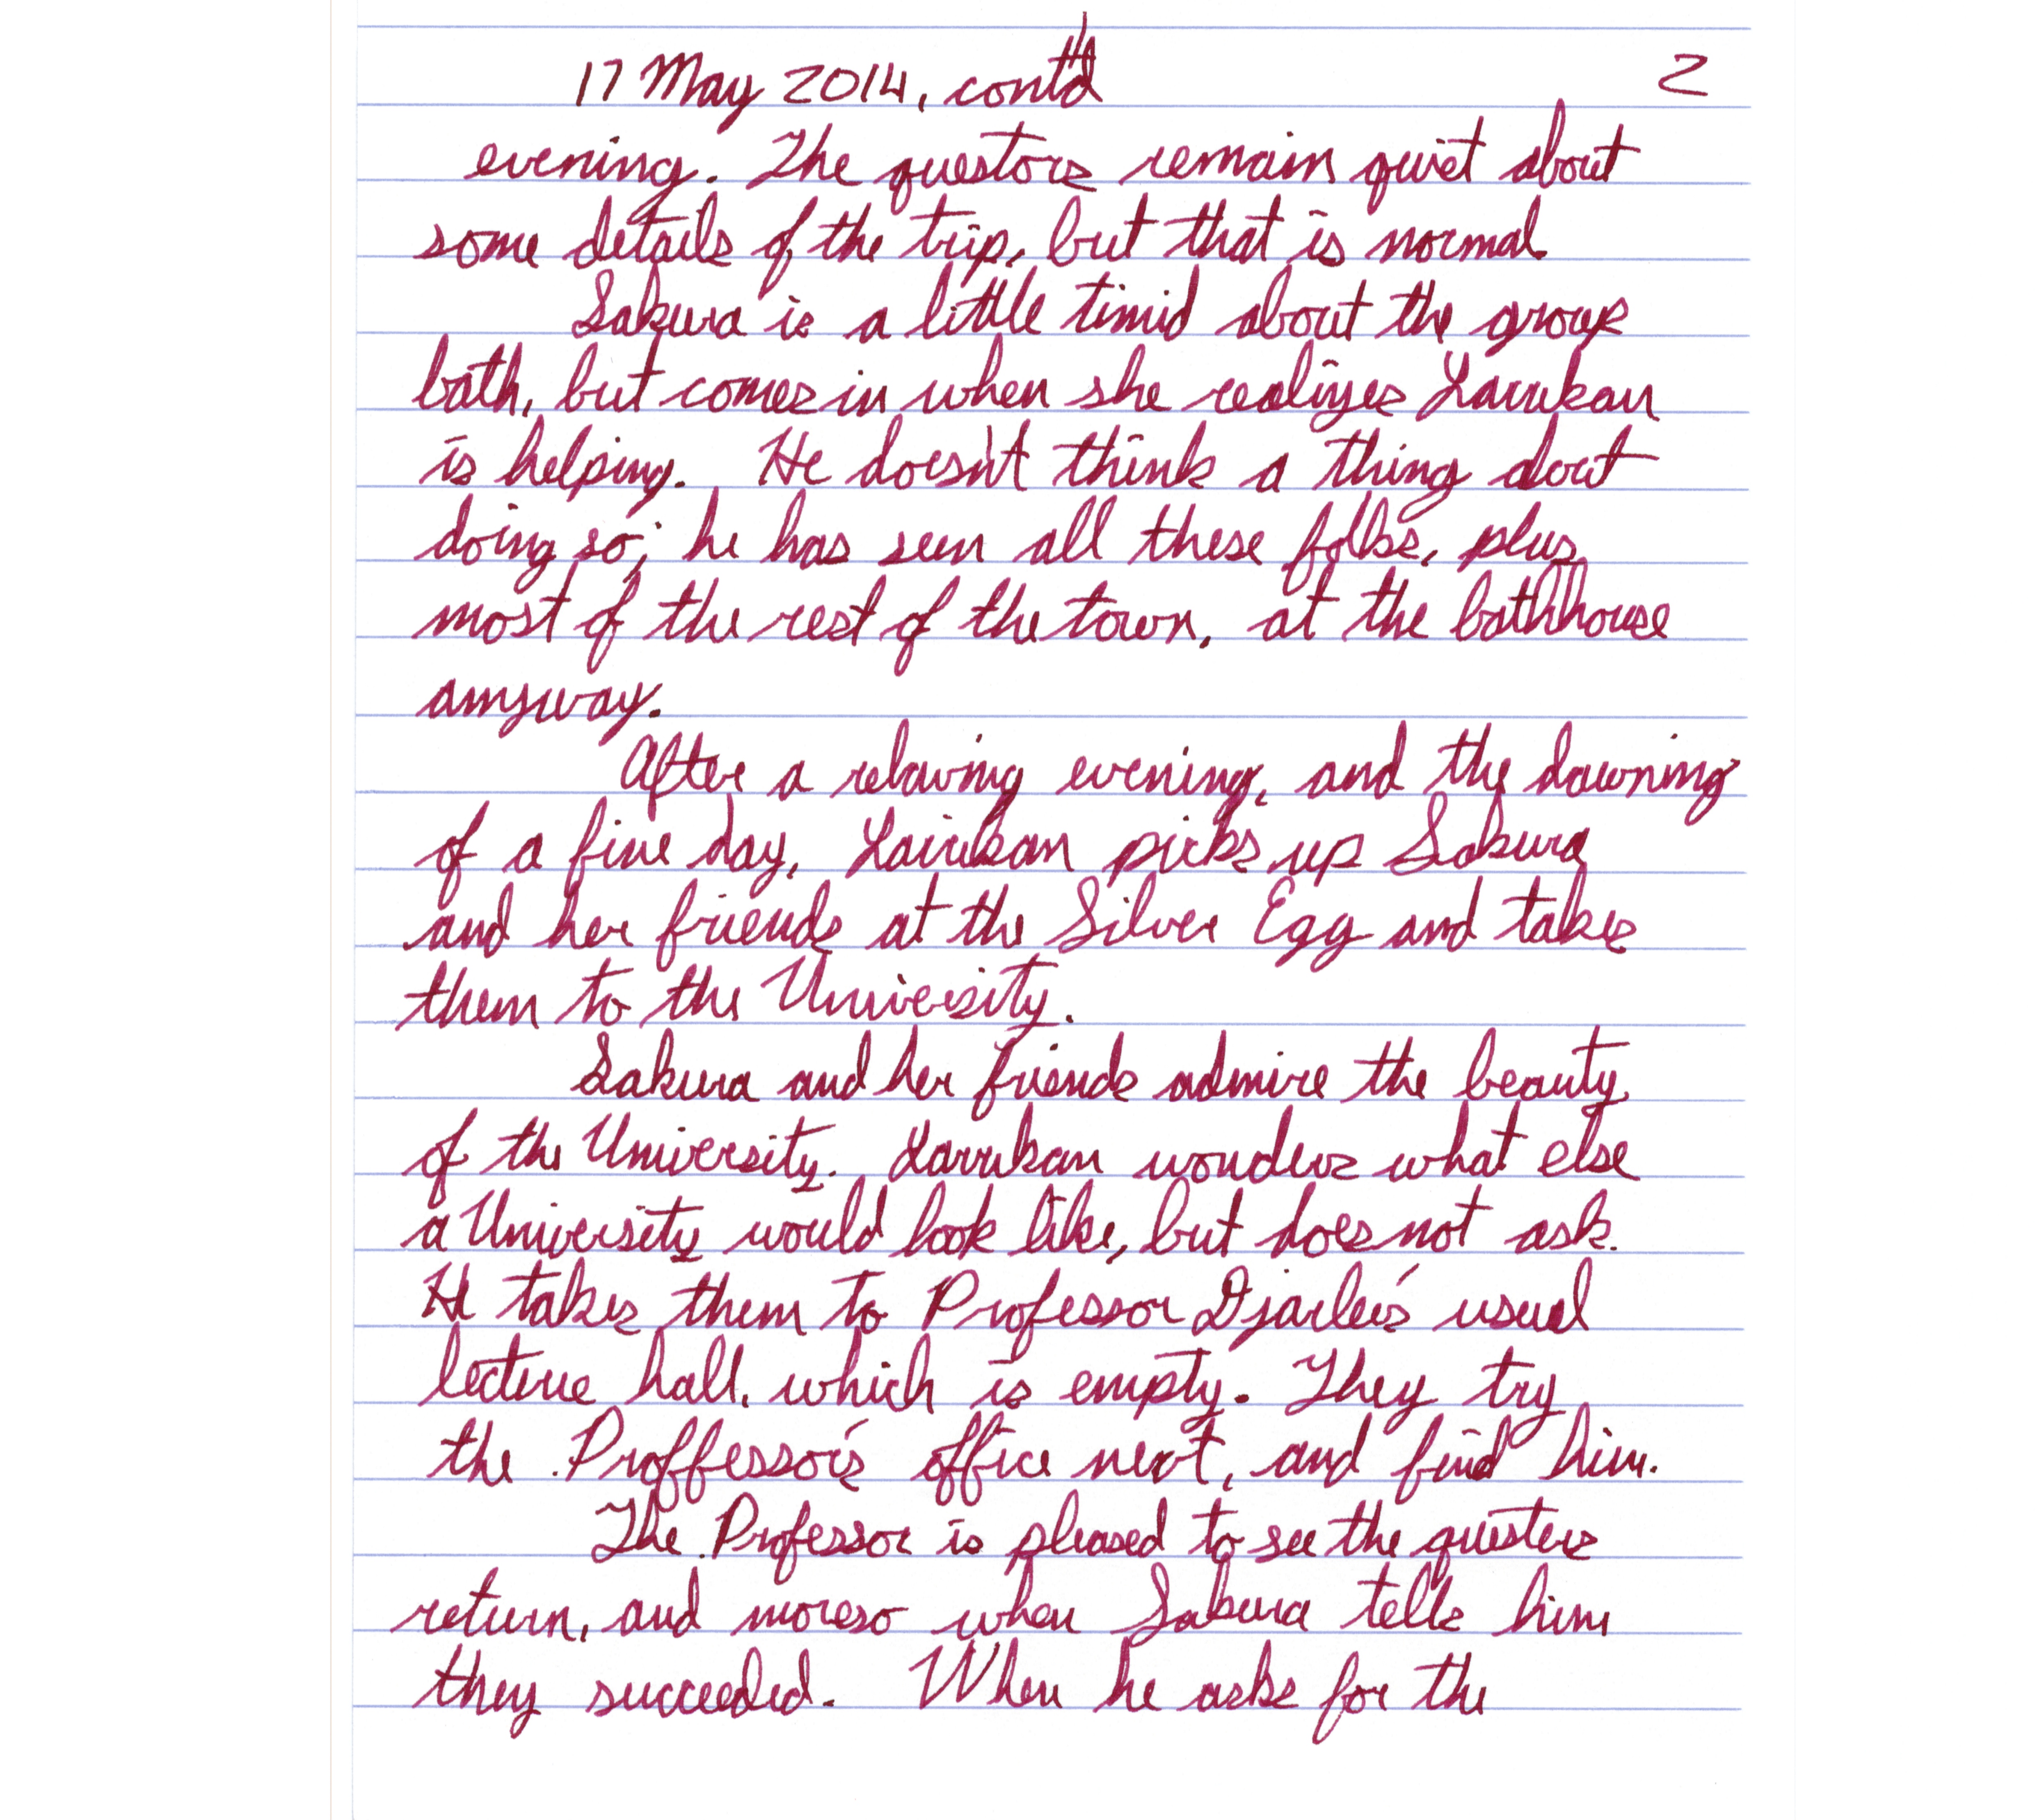 17 May 2014, cont'd 2
evening. The questors remain quiet about
some details of the trip, but that is normal
Sakura is a little timid about the group
bath, but comes in when she realizes Larrikan
is helping. He doesn't think a thing about
doing so; he has seen all these folks, plus
most of the rest of the town, at the bathhouse
anyway.
After a relaxing evening, and the dawning
of a fine day, Larrikan picks up Sakura
and her friends at the Silver Egg and takes
them to the University.
Sakura and her friends admire the beauty
of the University. Larrikan wonders what else
a University would look like, but does not ask.
He takes them to Professor Djarlei's usual
lecture hall, which is empty. They try
the Proffessor's office next, and find him.
The Professor is pleased to see the questers
return, and moreso when Sakura tells him
they succeeded. When he asks for the